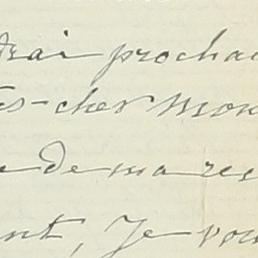 drai prochai
ès-cher Mon
e de ma rec
nt, Je vou